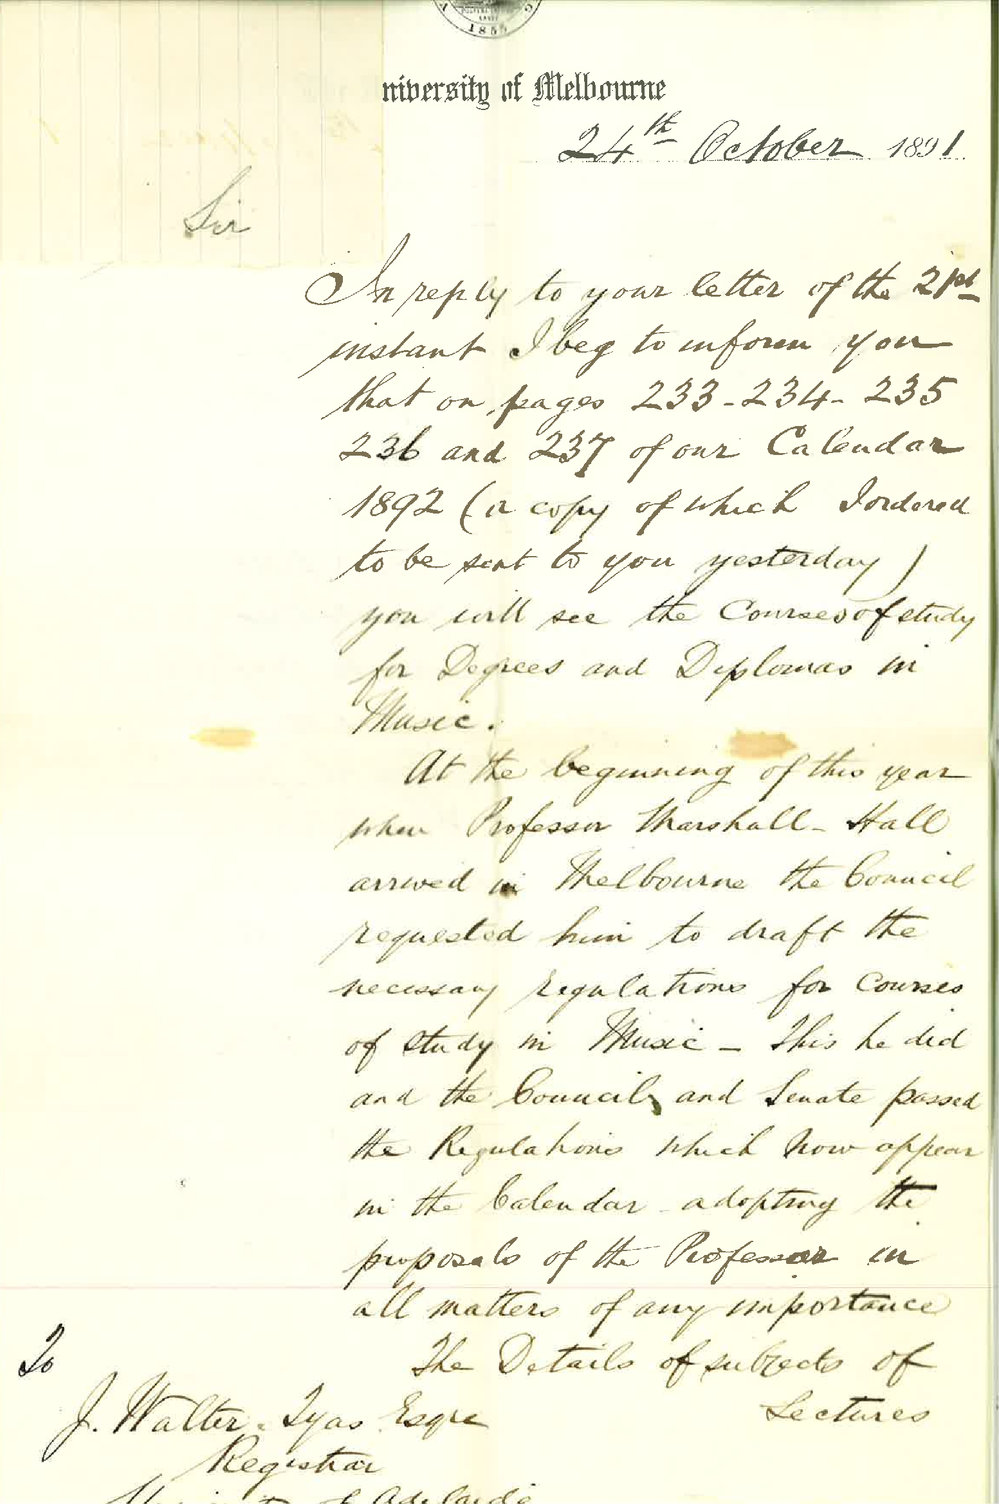 1855
niversity of Melbourne
24th October 1891
Sir
In reply to your letter of the 21st
instant I beg to inform you
that on pages 233-234-235
236 and 237 of our Calendar
1892 (a copy of which I ordered
to be sent to you yesterday)
you will see the Courses of study
for Degrees and Diplomas in
Music.
At the beginning of this year
when Professor Marshall-Hall
arrived in Melbourne the Council
requested him to draft the
necessary regulations for Courses
of study in Music - This he did
and the Council and Senate passed
the Regulations which now appear
in the Calendar adopting the
proposals of the Professor in
all matters of any importance
The Details of subjects of
Lectures
To
J. Walter Tyas Esqre
Registrar
University of Adelaide